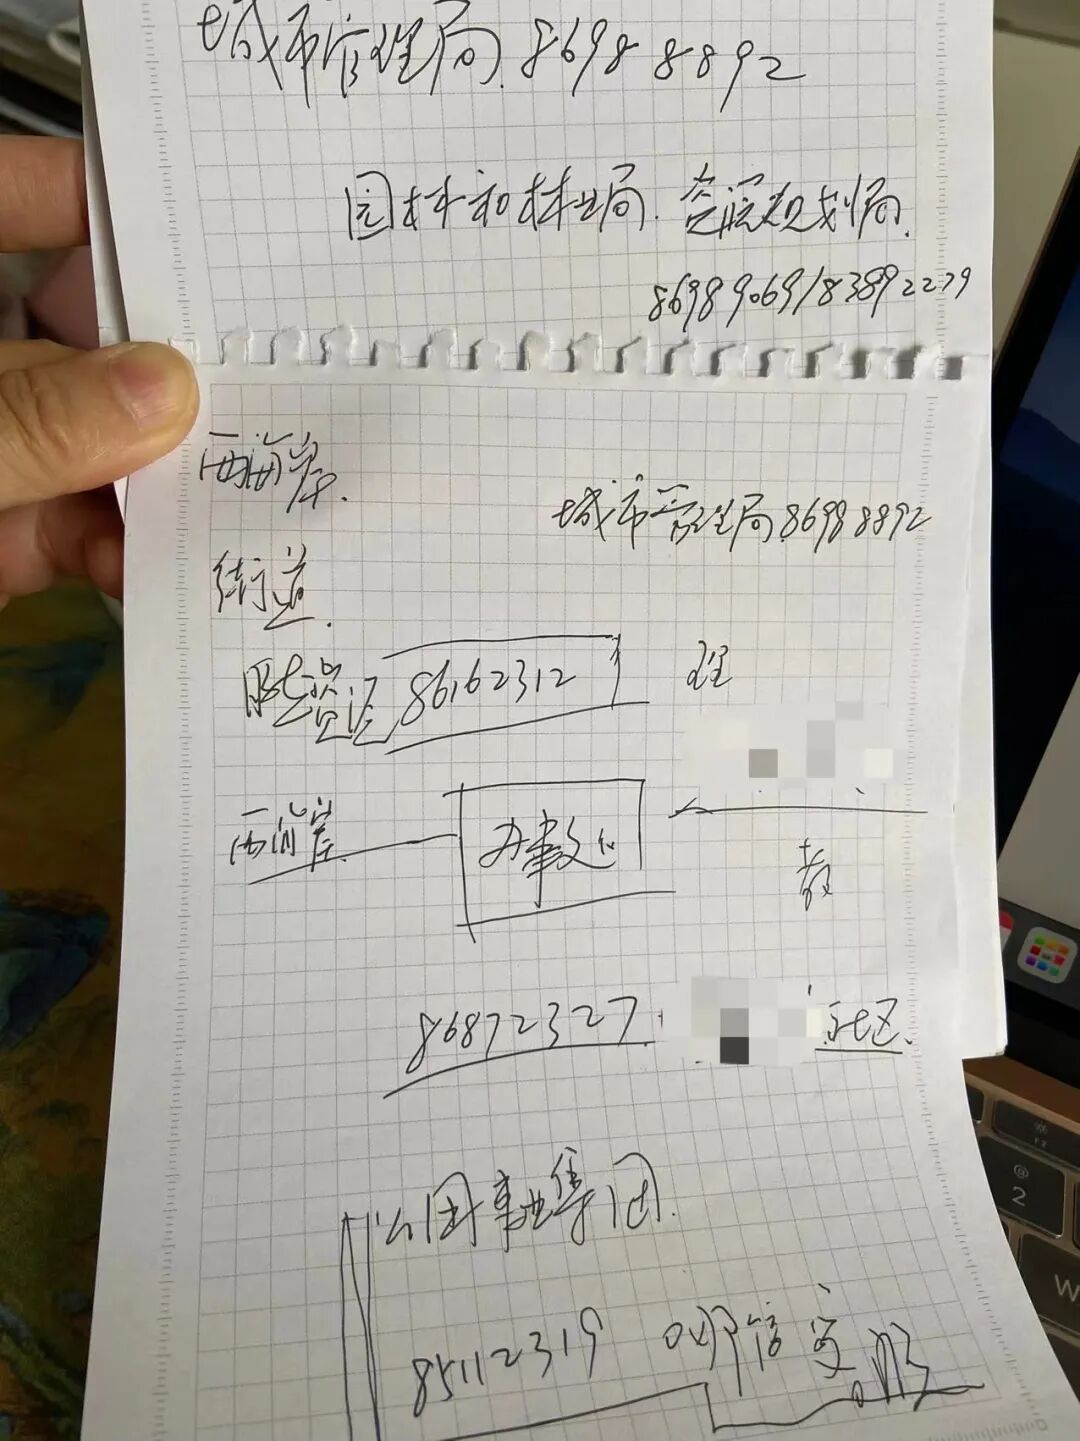 城市管理局 86988892
园林和林业局. 资源规划局.
86989069/83892279
西海岸.
城市管理局 86988892
街道.
86162312
理
西海岸 办事处
散
86872327. 社区.
公园事业集团.
85112319
2
W